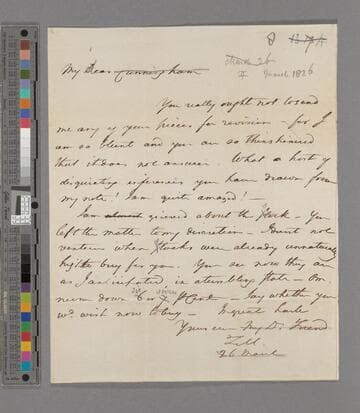 March 26
March 1826
My Dear Cunningham
You really ought not to send
me any of your pieces for revision – for I
am so blunt and you are so thinskinned
that it does not answer. What a host of
disquieting inferences you have drawn from
my note! I am quite amazed! –
I am almost grieved about the Stock – You
left the matter to my discretion – I durst not
venture when Stocks were already unnaturally
high to buy for you. You see now they are
as I anticipated in a tumbling state –
down 6 or 7 per Cent – Say whether you
wd. wish now to buy – In great haste
Yours – My Dr. Friend
26 March